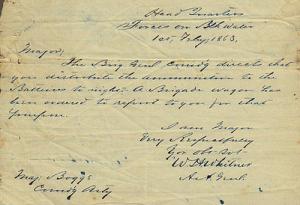 Head Quarters
Forces on Blk Water
1st Feby, 1863.
Major,
The Brig Genl Comdg directs that
you distribute the ammunition to the
Batteries to night. A Brigade wagon has
been ordered to report to you for that
purpose.
I am Major
Very Respectfully
Yor obt Svt
W D Whitner
Maj. Boggs
Comdg Arty